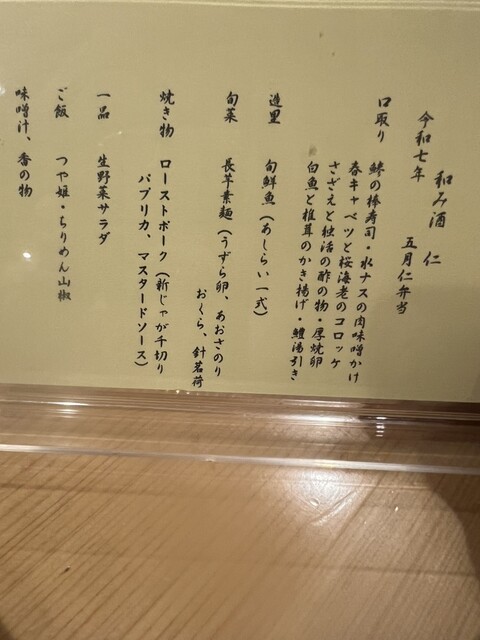 和み酒 仁
令和七年 五月仁弁当
口取り 鯵の棒寿司・水ナスの肉味噌かけ
春キャベツと桜海老のコロッケ
さざえと独活の酢の物・厚焼卵
白魚と椎茸のかき揚げ・鱧湯引き
造里 旬鮮魚(あしらい一式)
旬菜 長芋素麺(うずら卵、あおさのり
おくら、針茗荷
焼き物 ローストポーク(新じゃが千切り
パプリカ、マスタードソース)
一品 生野菜サラダ
ご飯 つや姫・ちりめん山椒
味噌汁、香の物